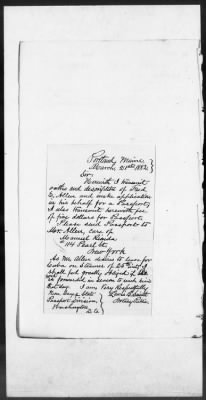 Portland, Maine
March, 21st 1882
Sir:
Herewith I transmit
oaths and description of Fred
G. Allen and make application
in his behalf for a Passport,
I also transmit herewith fee
of five dollars for Passport
Please send Passport to
Mr. Allen, care of
Manuel
# 114 Pearl St.
New York
As Mr Allen desires to leave for
Cuba on Steamer of 25th inst, I
shall feel greatly obliged if
is forwarded in season to reach him
Saturday. I am Very Respectfully
State
Passport Division,
Washington
D.C.